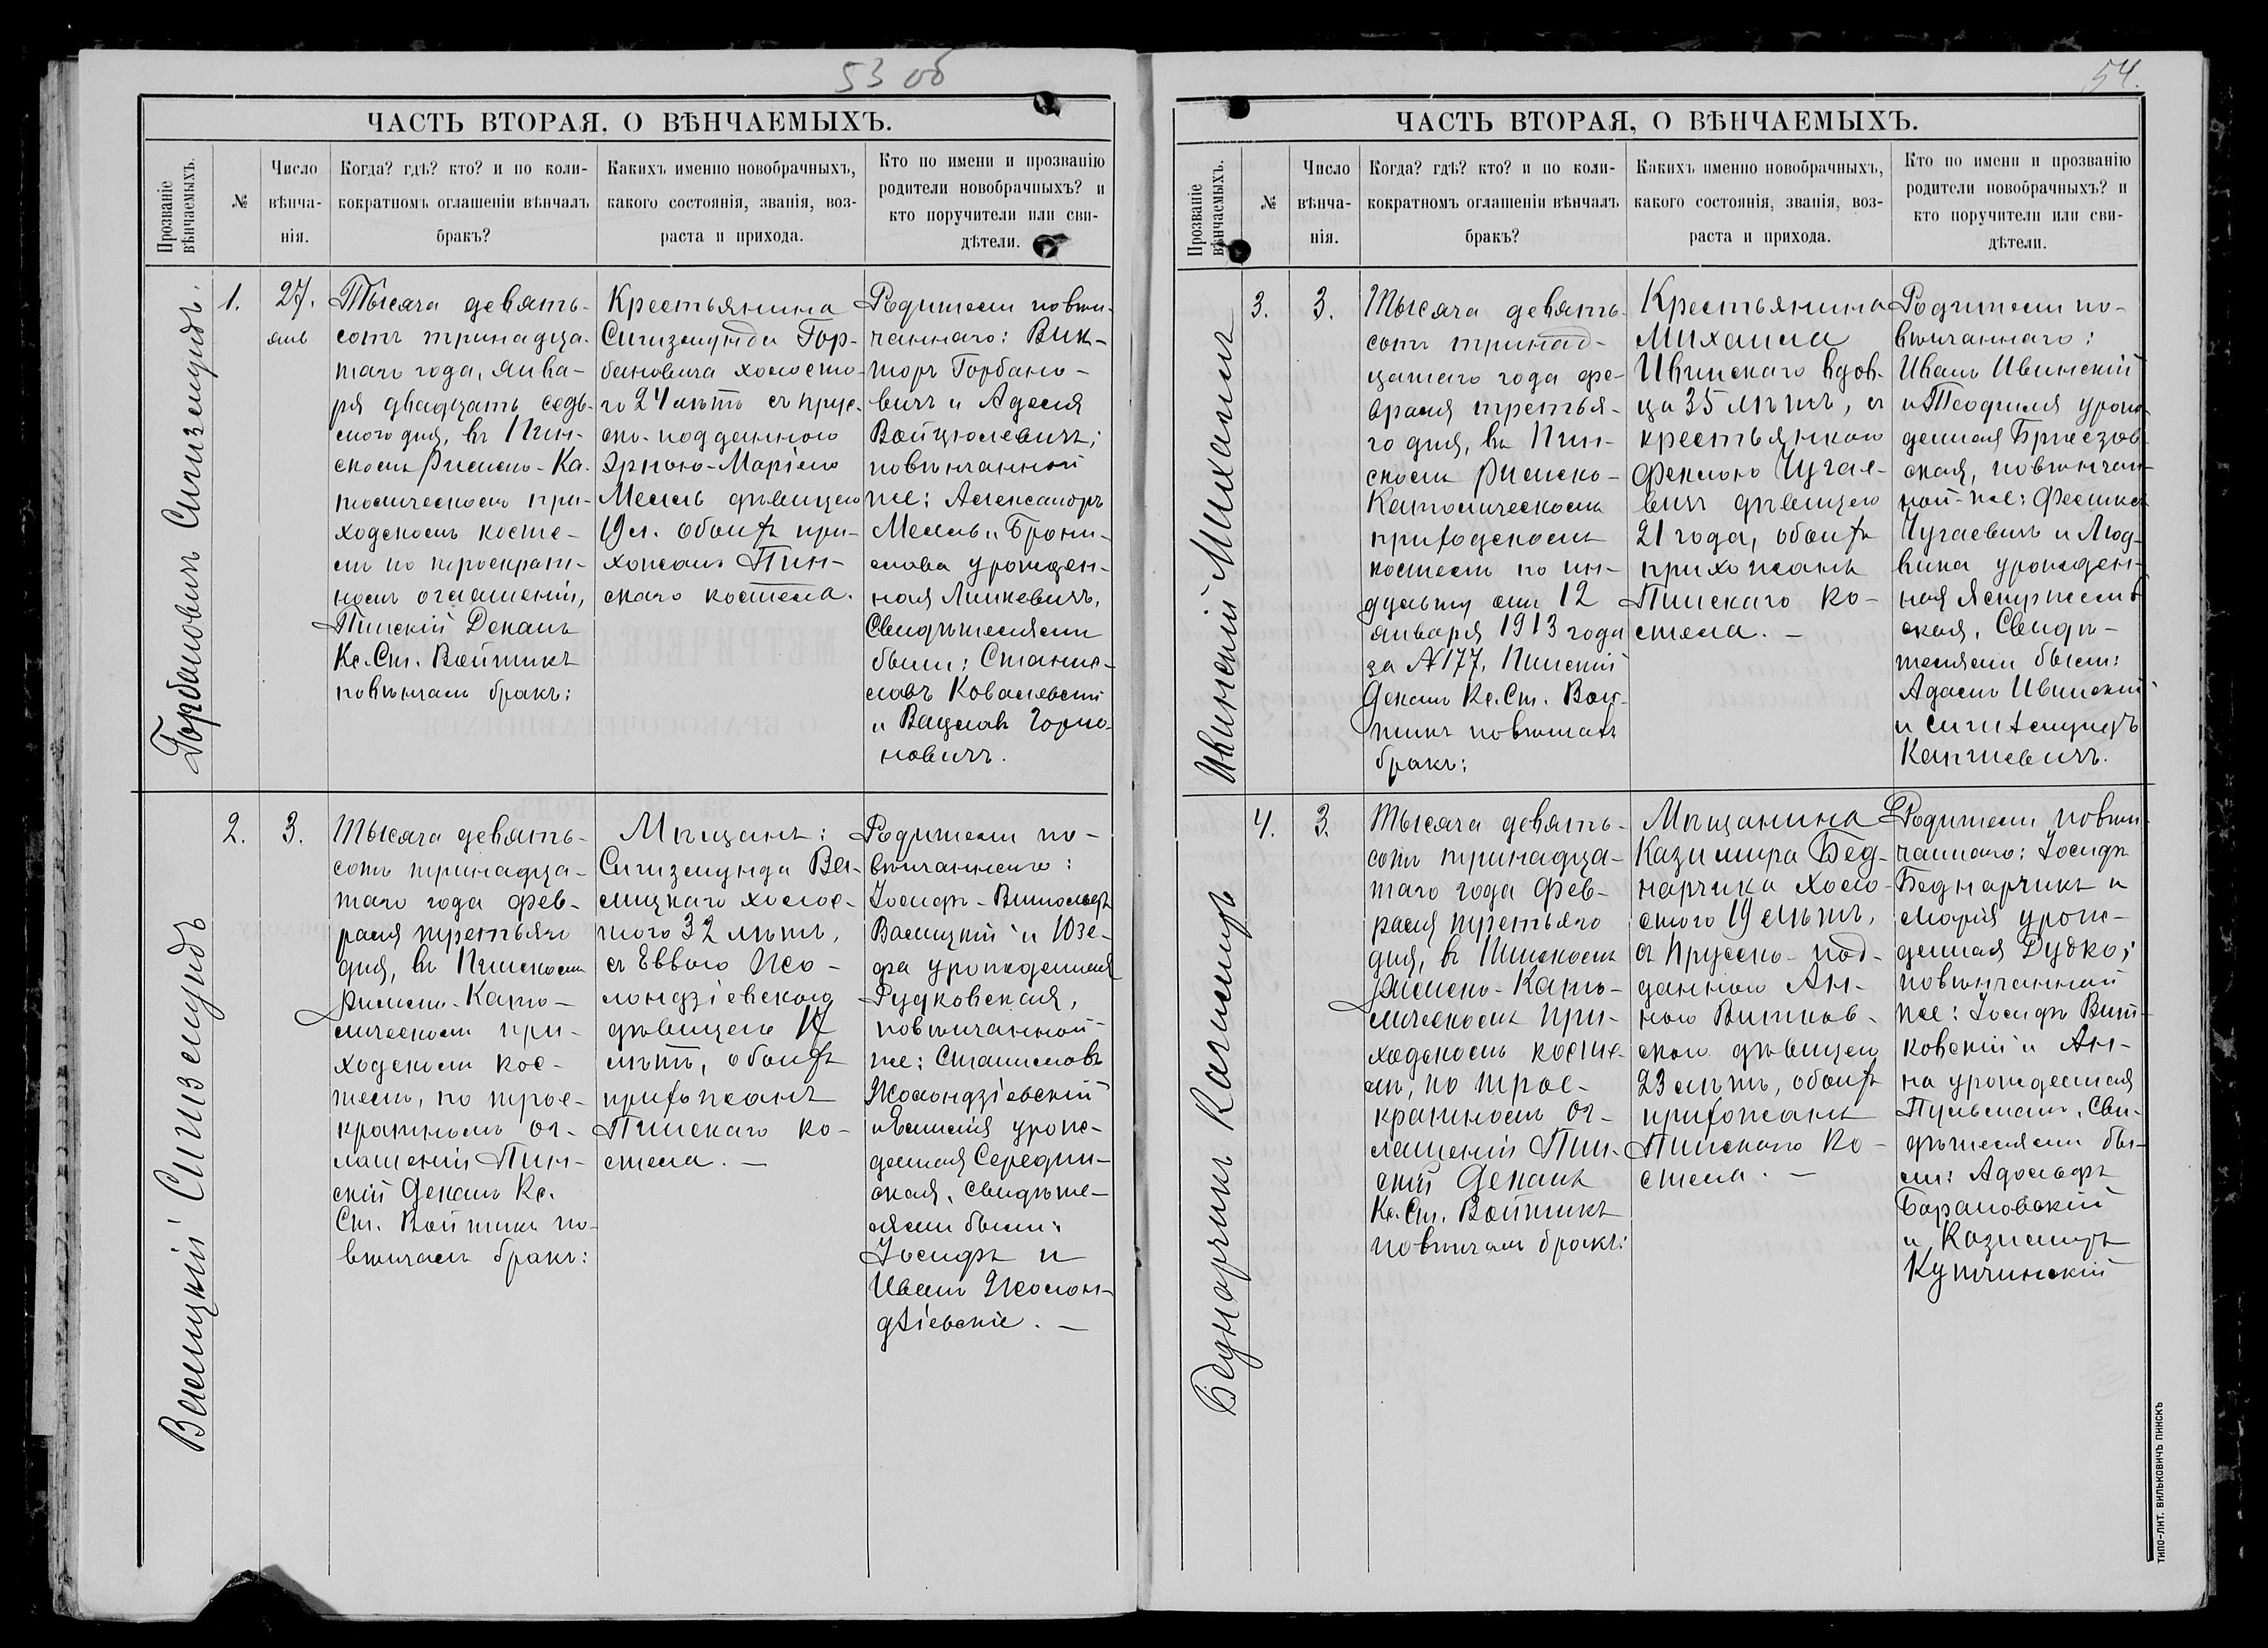 53 об
ЧАСТЬ ВТОРАЯ, О ВѢНЧАЕМЫХЪ.
Прозваніе
вѣнчаемыхъ.
№
Число
вѣнча-
нія.
Когда? гдѣ? кто? и по коли-
кократномъ оглашеніи вѣнчалъ
бракъ?
Какихъ именно новобрачныхъ,
какого состоянія, званія, воз-
раста и прихода.
Кто по имени и прозванію
родители новобрачныхъ? и
кто поручители или сви-
дѣтели.
Горбановичъ Сигизмундъ.
1.
27.
янв
Тысяча девять-
сотъ тринадца-
таго года, янва-
ря двадцать седь-
мого дня, въ Пин-
скомъ Римско-Ка-
толическомъ при-
ходскомъ косте-
лѣ по троекрат-
номъ оглашеніи,
Пинскій Деканъ
Кс. Ст. Войтикъ
повѣнчалъ бракъ:
Крестьянина
Сигизмунда Гор-
бановича холосто-
го 24 лѣтъ съ прус-
ско-подданною
Эрною-Маріею
Мелль дѣвицею
19 л. обоихъ при-
хожанъ Пин-
скаго костела.
Родители повѣн-
чаннаго: Вик-
торъ Горбано-
вичъ и Аделя
Войцюлевичъ;
повѣнчанной
же: Александръ
Мелль и Брони-
слава урожден-
ная Линкевичъ,
Свидѣтелями
были: Станис-
лавъ Ковалевскій
и Вацлавъ Горба-
новичъ.
Велицкій Сигизмундъ
2.
3.
Тысяча девять-
сотъ тринадца-
таго года фев-
раля третьяго
дня, въ Пинскомъ
Римско-Като-
лическомъ при-
ходскомъ кос-
телѣ, по трое-
кратномъ ог-
лашеніи Пин-
скій Деканъ Кс.
Ст. Войтикъ по-
вѣнчалъ бракъ:
Мѣщанъ:
Сигизмунда Ва-
лицкаго холос-
того 32 лѣтъ,
съ Еввою Жо-
лондзіевскою
дѣвицею 17
лѣтъ, обоихъ
прихожанъ
Пинскаго ко-
стела. —
Родители по-
вѣнчаннаго:
Іосифъ-Витольдъ
Валицкій и Юзе-
фа урожденная
Рудковская,
повѣнчанной-
же: Станиславъ
Жолондзіевскій
и Эмилія урож-
денная Середин-
ская, Свидѣте-
лями были:
Іосифъ и
Иванъ Жолон-
дзіевскіе. —
54.
ЧАСТЬ ВТОРАЯ, О ВѢНЧАЕМЫХЪ.
Прозваніе
вѣнчаемыхъ.
№
Число
вѣнча-
нія.
Когда? гдѣ? кто? и по коли-
кократномъ оглашеніи вѣнчалъ
бракъ?
Какихъ именно новобрачныхъ,
какого состоянія, званія, воз-
раста и прихода.
Кто по имени и прозванію
родители новобрачныхъ? и
кто поручители или сви-
дѣтели.
Ивинскій Михаилъ
3.
3.
Тысяча девять-
сотъ тринад-
цатаго года фе-
враля третья-
го дня, въ Пин-
скомъ Римско-
Католическомъ
приходскомъ
костелѣ по ин-
дульту отъ 12
января 1913 года
за № 177, Пинскій
Деканъ Кс. Ст. Вой-
тикъ повѣнчалъ
бракъ:
Крестьянина
Михаила
Ивинскаго вдов-
ца 35 лѣтъ, съ
крестьянкою
Феклою Чугае-
вичъ дѣвицею
21 года, обоихъ
прихожанъ
Пинскаго ко-
стела. —
Родители по-
вѣнчаннаго:
Иванъ Ивинскій
и Теофиля урож-
денная Бржезов-
ская, повѣнчан-
ной-же: Феликсъ
Чугаевичъ и Люд-
вика урожден-
ная Ястржемб-
ская, Свидѣ-
телями были:
Адамъ Ивинскій
и Сигизмундъ
Каптевичъ.
Беднарчикъ Казиміръ
4.
3.
Тысяча девять-
сотъ тринадца-
таго года фев-
раля третьяго
дня, въ Пинскомъ
Римско-Като-
лическомъ при-
ходскомъ косте-
лѣ, по трое-
кратномъ ог-
лашеніи Пин-
скій Деканъ
Кс. Ст. Войтикъ
повѣнчалъ бракъ:
Мѣщанина
Казиміра Бед-
нарчика холо-
стого 19 лѣтъ,
съ прусско-под-
данною Ан-
ною Витков-
скою дѣвицею
23 лѣтъ, обоихъ
прихожанъ
Пинскаго ко-
стела. —
Родители повѣн-
чаннаго: Іосифъ
Беднарчикъ и
Марія урож-
денная Дудко;
повѣнчанной
же: Іосифъ Вит-
ковскій и Ан-
на урожденная
Пульманъ, Сви-
дѣтелями бы-
ли: Адольфъ
Барановскій
и Казиміръ
Кутчинскій
ТИПО-ЛИТ. ВИЛЬКОВИЧЪ ПИНСКЪ